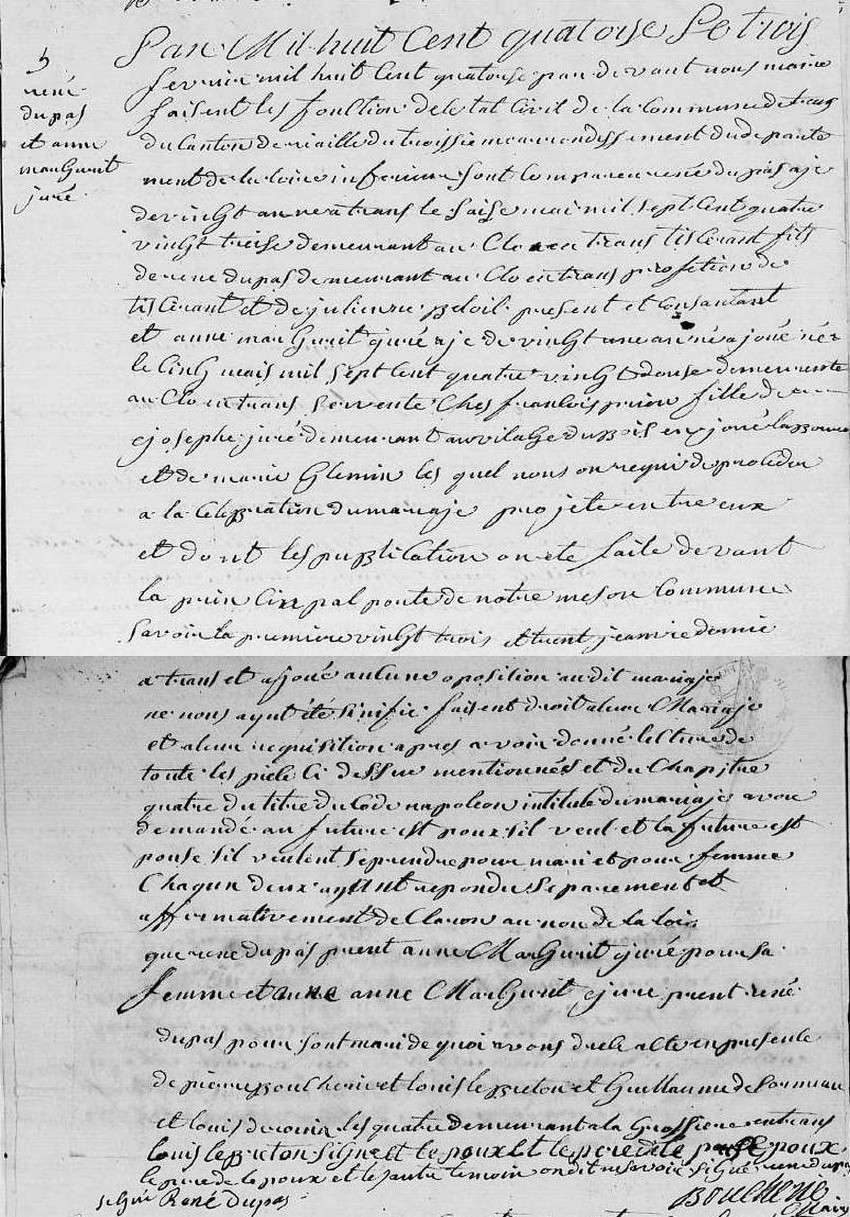 5
rené
dupas
et anne
marGurit
juré
Lan Mil huit Cent quatorse Le trois
fevrier mil huit Cent quatorse par devant nous maire
faisent les fonction deletat Civil de la Commune de trans
du Canton de riaille du troissieme arrondissement du departe
ment de la loire inferieure sont Comparu rené dupas aje
de vingt an ne a trans le saise mai mil sept Cent quatre
vinght treise demeurant au Clo en trans tisserant fils
de rene dupas demeurant au Clo en trans profetion de
tisserant et de julienne Beloil present et Consantant
et anne marGurit juré aje de vinght une an né a joué née
le Cinq mars mil sept Cent quatre vinght douse demeurente
au Clo en trans servente Ches franCois fille de
josephe juré demeurant au vilage du Bois en joué
et de marie Glemin les quel nous on requi de proCeder
a la Celebration du mariaje projete entre eux
et dont les publiCation on ete faite devant
la prinCippal porte de notre meson Commune
savoir la premiere vinght trois et trent janvie dernie
a trans et a joué auCune oposition au dit mariaje
ne nous ayut été sinifie faisent droit a leur Mariaje
et a leur requisition apres avoir donné leCture de
toute les pieCe Ci dessue mentionnés et du Chapitre
quatre du titre du Code napoleon intitule du mariaje avoir
demandé au future est poux sil veul et la future est
pouse sil veulent se prendre pour mari et pour femme
Chaqun deux ayant repondu separement et
affirmativement deClaron au non de la loi
que rene dupas prent anne MarGurit juré pour sa
femme et anne MarGurit jure prent rené
dupas pour sont mari de quoi avons drele aCte en presente
de pierre BouCherie et louis le Breton et Guillaume
et louis les quatre demeurant a la Grossiere en trans
louis le Breton signe et le poux et le pere
le pere de le poux et les autre temoin on dit ne savoir signé rene dupas
René Dupas
Boucherie
Maire